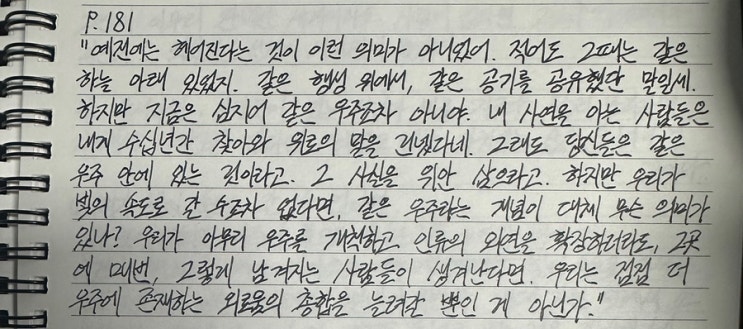 P. 181
"예전에는 헤어진다는 것이 이런 의미가 아니었어. 적어도 그때는 같은
하늘 아래 있었지. 같은 행성 위에서, 같은 공기를 공유했단 말일세.
하지만 지금은 심지어 같은 우주조차 아니야. 내 사연을 아는 사람들은
내게 수십년간 찾아와 위로의 말을 건넸다네. 그래도 당신들은 같은
우주 안에 있는 것이라고. 그 사실을 위안 삼으라고. 하지만 우리가
빛의 속도로 갈 수조차 없다면, 같은 우주라는 개념이 대체 무슨 의미가
있나? 우리가 아무리 우주를 개척하고 인류의 외연을 확장하더라도, 그곳
에 매번, 그렇게 남겨지는 사람들이 생겨난다면. 우리는 점점 더
우주에 존재하는 외로움의 총합을 늘려갈 뿐인 게 아닌가."